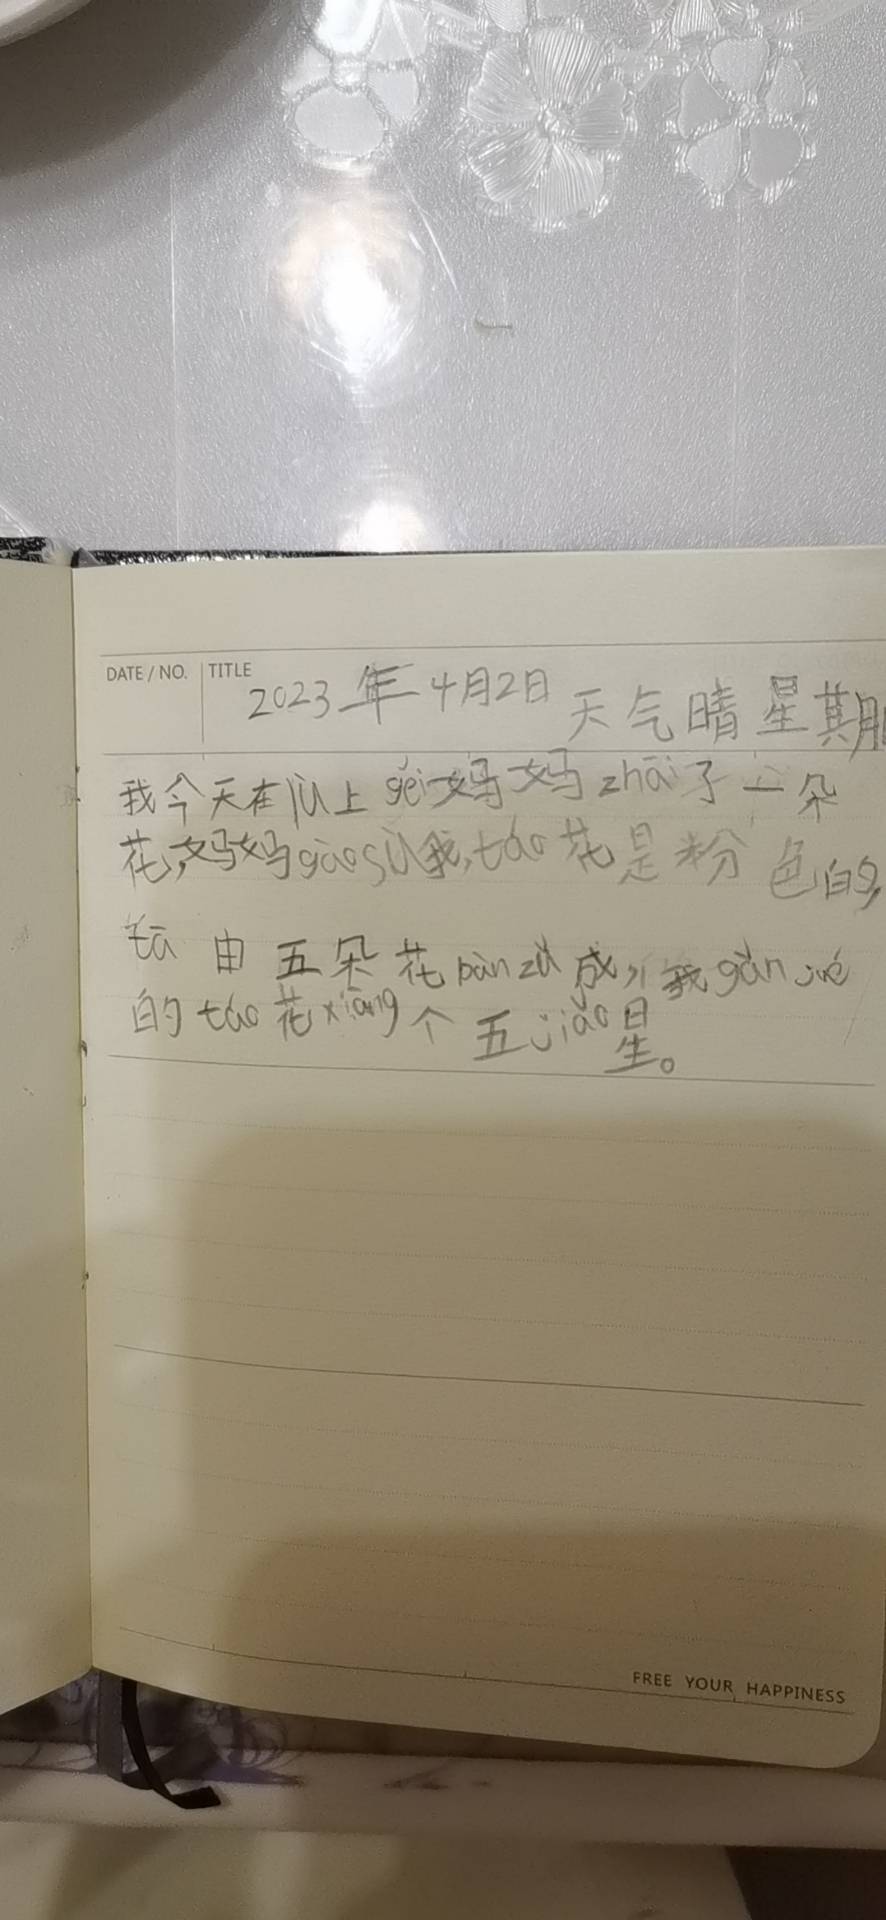 DATE / NO. TITLE
2023年4月2日 天气晴 星期
我今天在lù上gěi妈妈zhāi了一朵
花,妈妈gàosù我,táo花是粉色的,
tā由五朵花bàn zǔ成,我gǎn jué
的táo花xiàng个五jiǎo星。
FREE YOUR HAPPINESS